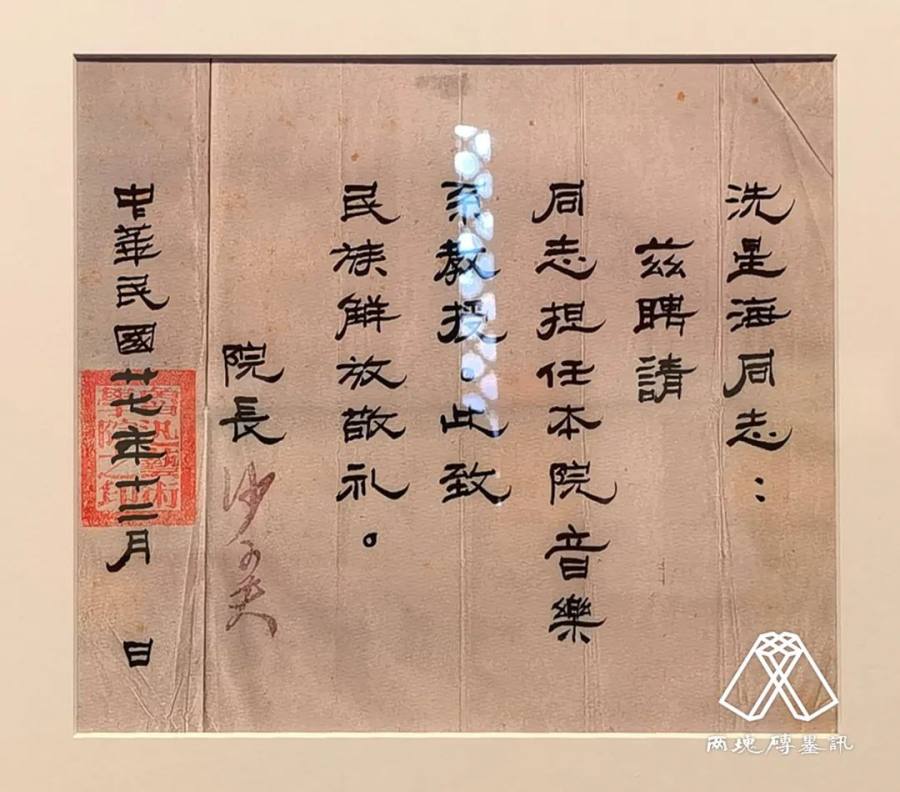 洗星海同志：
兹聘請
同志担任本院音樂
系教授。此致
民族解放敬礼。
院長 沙可夫
中華民國廿七年十二月 日
魯迅藝術
學院之印
两塊磚墨訊